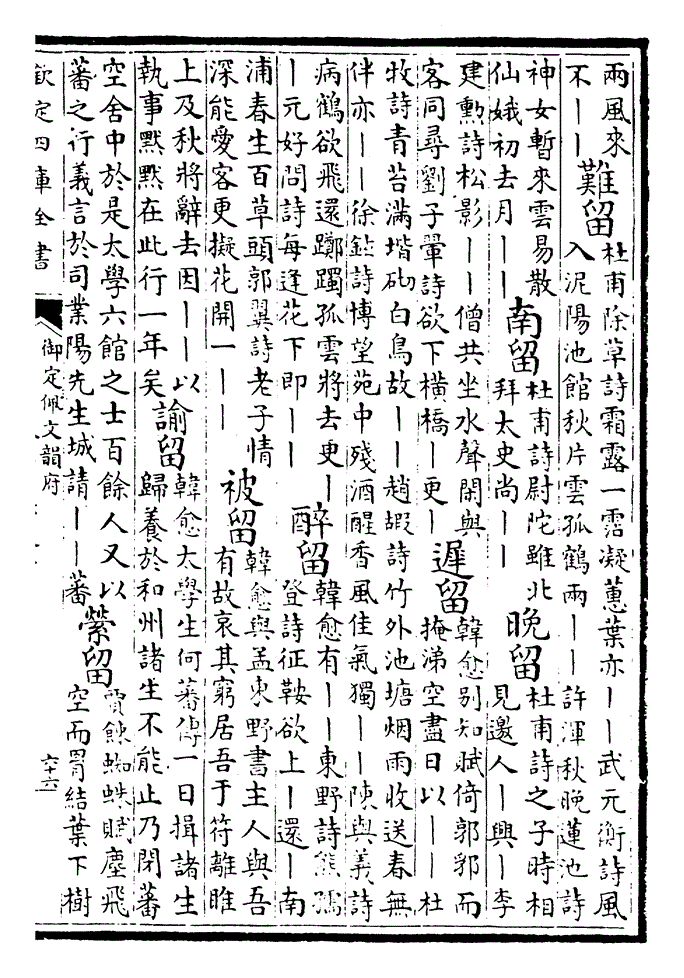 兩風來
不｜｜
難留
杜甫除草詩霜露一霑凝蕙葉亦｜｜武元衡詩風
入泥陽池館秋片雲孤鶴兩｜｜許渾秋晚蓮池詩
神女暫來雲易散
仙娥初去月｜｜
南留
杜甫詩尉陀雖北
拜太史尚｜｜
晚留
杜甫詩之子時相
見邀人｜興｜李
建勲詩松影｜｜僧共坐水聲閒與
客同尋劉子翬詩欲下橫橋｜更｜
遲留
韓愈别知賦倚郭郛而
掩涕空盡日以｜｜杜
牧詩青苔滿堦砌白鳥故｜｜趙嘏詩竹外池塘烟雨收送春無
伴亦｜｜徐鉉詩博望苑中殘酒醒香風佳氣獨｜｜陳與義詩
病鶴欲飛還躑躅孤雲將去更｜
｜元好問詩每逢花下即｜｜
醉留
韓愈有｜｜東野詩熊孺
登詩征鞍欲上｜還｜南
浦春生百草頭郭翼詩老子情
深能愛客更擬花開一｜｜
被留
韓愈與孟東野書主人與吾
有故哀其窮居吾于符離睢
上及秋將辭去因｜｜以
執事黙黙在此行一年矣
諭留
韓愈太學生何蕃傳一日揖諸生
歸養於和州諸生不能止乃閉蕃
空舍中於是太學六館之士百餘人又以
蕃之行義言於司業陽先生城請｜｜蕃
縈留
賈餗蜘蛛賦塵飛
空而罥結葉下樹
欽定四庫全書
御定佩文韻府
六十六